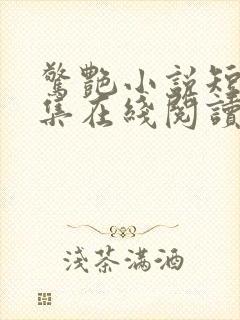 驚艷小說短
集在綫閱讀
淺茶滿酒